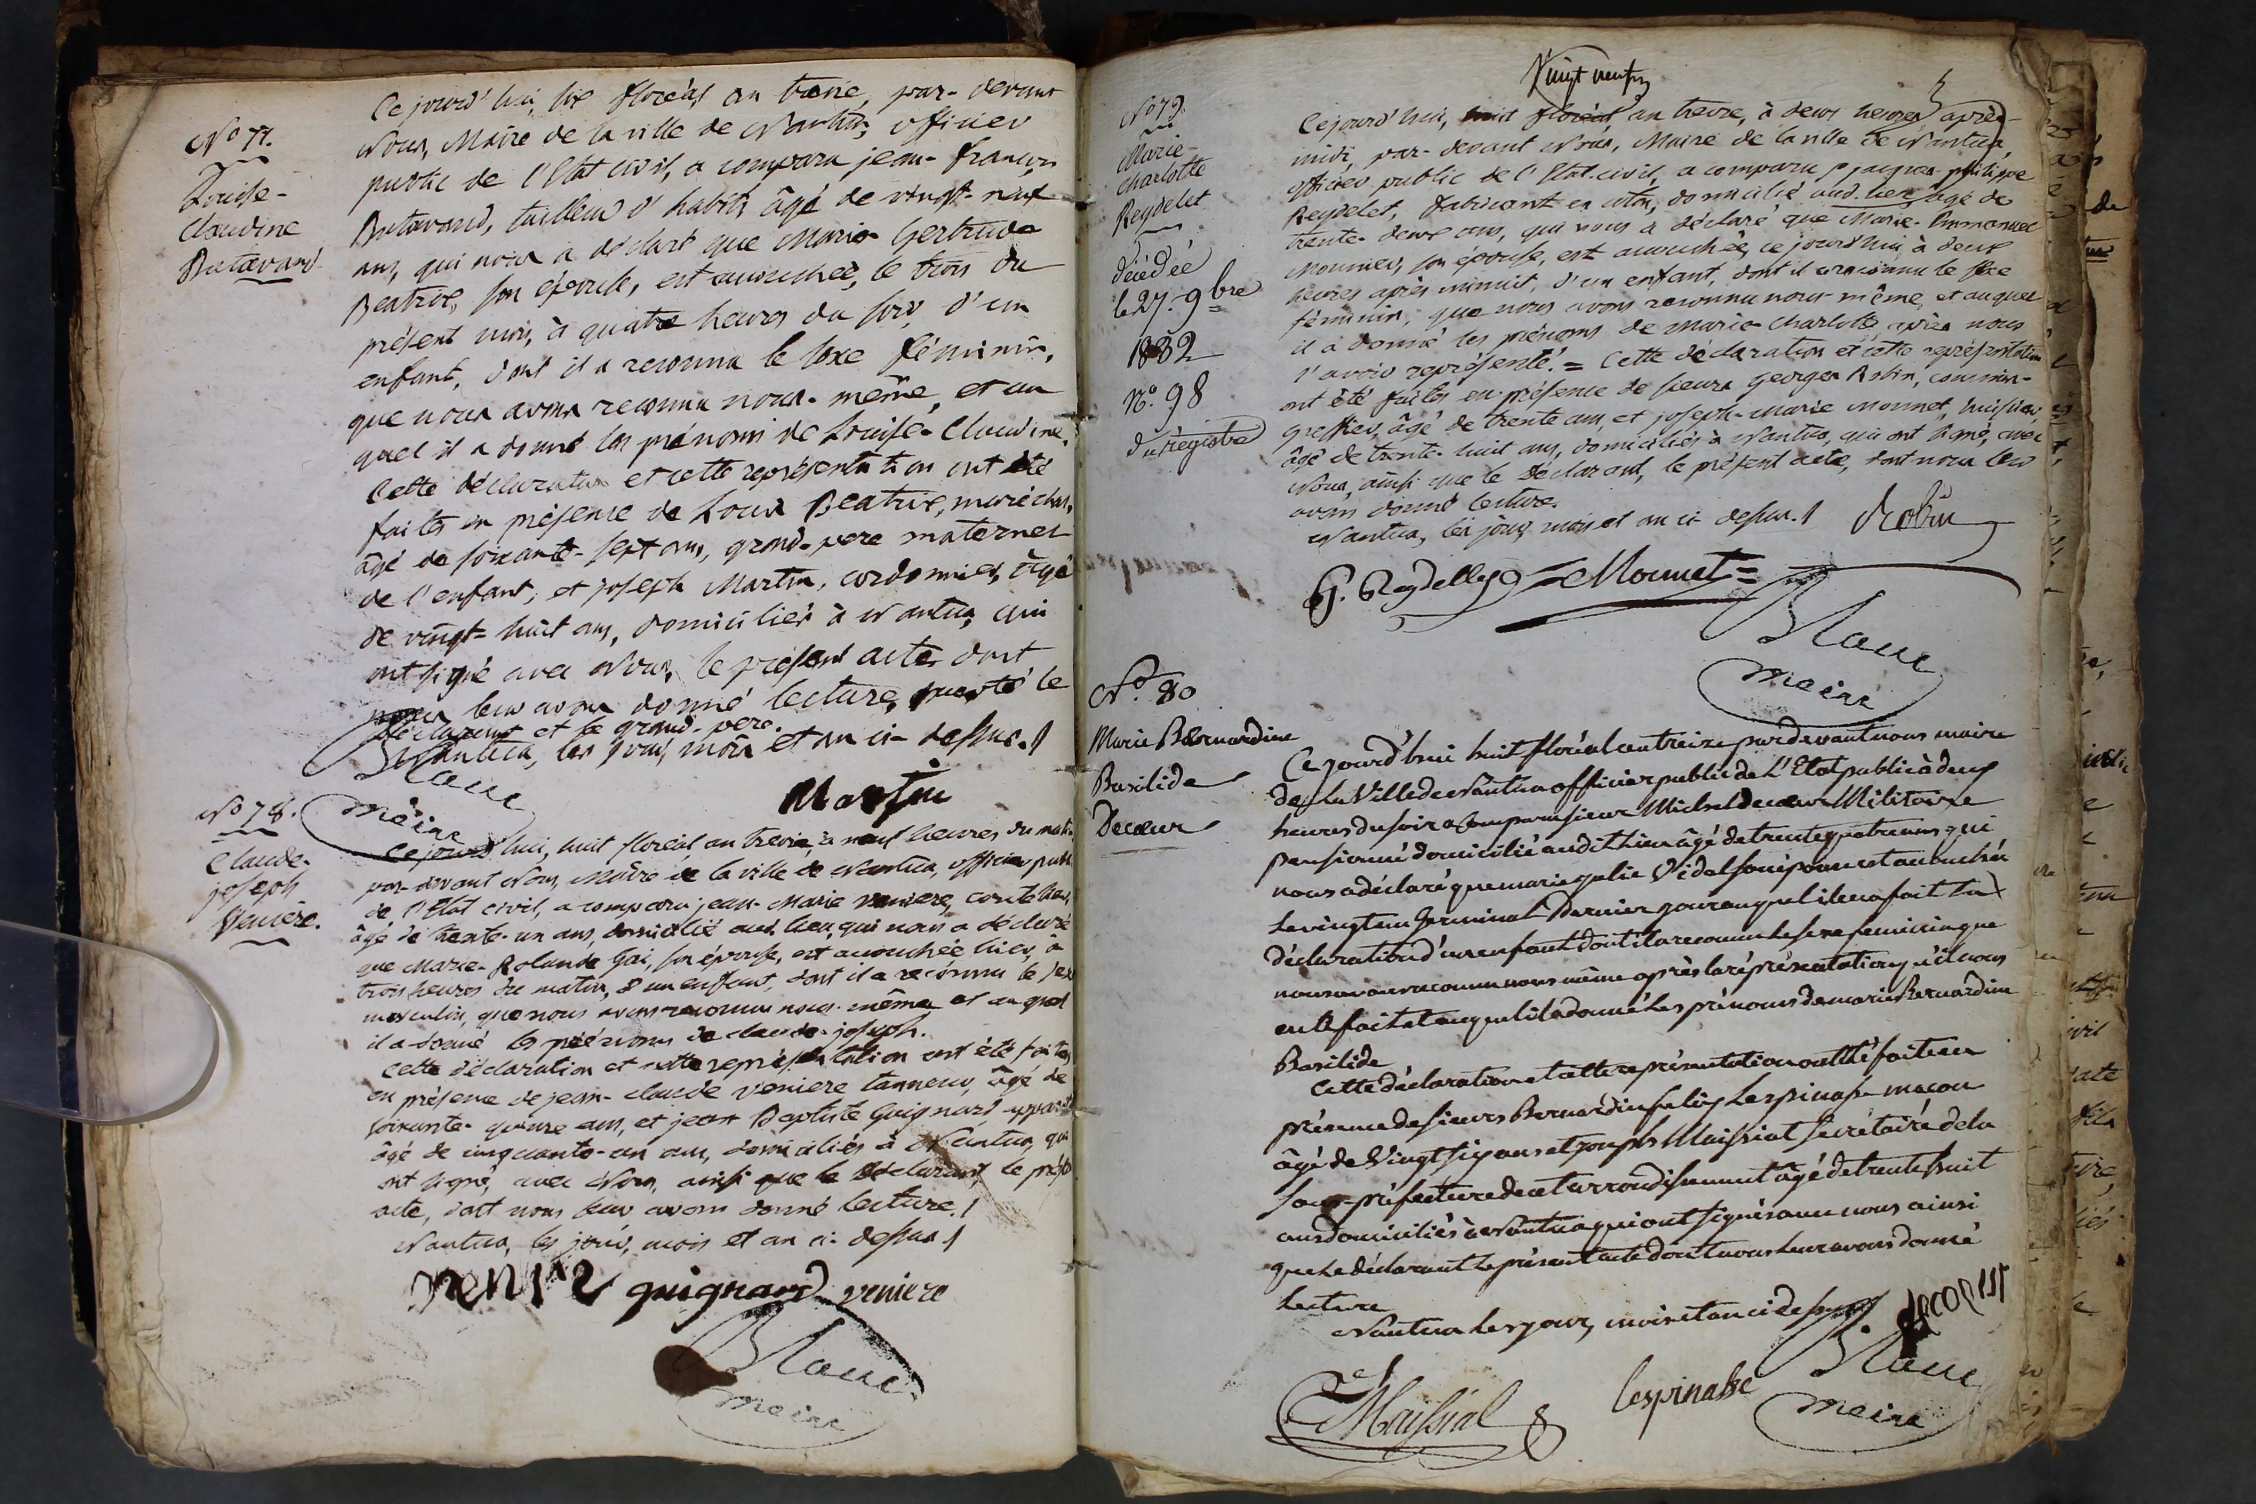 No 77.
Louise-
Claudine
Butavand
Ce jourd'hui, six floréal an treize, par-devant
Nous, Maire de la ville de Nantua, officier
public de l'Etat civil, a comparu jean-françois
Butavand, tailleur d'habits, âgé de vingt-neuf
ans, qui nous a déclaré que Marie Gertrude
Beatrix, son épouse, est accouchée, le trois du
présent mois, à quatre heures du soir, d'un
enfant, dont il a reconnu le sexe féminin,
que nous avons reconnu nous-même, et au
quel il a donné les prénoms de Louise-Claudine.
Cette déclaration et cette représentation ont été
faites en présence de Louis Beatrix, maréchal,
âgé de soixante-sept ans, grand-pere maternel
de l'enfant, et joseph Martin, cordonnier, âgé
de vingt-huit ans, domiciliés à Nantua, qui
ont signé avec Nous, le présent acte, dont
nous leur avons donné lecture, excepté le
déclarant et le grand-pere.
Nantua, les jour, mois et an ci-dessus.
Blanc
maire
Martin
No 78.
Claude-
joseph
Veniere.
Ce jourd'hui, huit floréal an treize, à neuf heures du matin
par-devant Nous, Maire de la ville de Nantua, officier public
de l'Etat civil, a comparu jean-Marie veniere,
âgé de trente-un ans, domicilié aud. lieu, qui nous a déclaré
que Marie-Rolande Gai, son épouse, est accouchée hier, à
trois heures du matin, d'un enfant, dont il a reconnu le sexe
masculin, que nous avons reconnu nous-même et au quel
il a donné les prénoms de claude-joseph.
Cette déclaration et cette représentation ont été faites
en présence de jean-claude veniere tanneur, âgé de
soixante-quinze ans, et jean Baptiste Guignard
âgé de cinquante-un ans, domiciliés à Nantua, qui
ont signé, avec Nous, ainsi que le déclarant, le présent
acte, dont nous leur avons donné lecture.
Nantua, les jour, mois et an ci-dessus
guignard veniere
Blanc
maire
Vingt neuf
No 79.
Marie-
Charlotte
Reydelet
décédée
le 27. 9bre
1882
No. 98
du registre
Ce jourd'hui, huit floréal an treize, à deux heures après-
midi, par-devant Nous, Maire de la ville de Nantua,
officier public de l'Etat-civil, a comparu jaques philippe
Reydelet, fabricant en coton, domicilié aud. lieu, âgé de
trente-deux ans, qui nous a déclaré que Marie-Emmanuel
Mounier, son épouse, est accouchée, ce jourd'hui, à deux
heures après minuit, d'un enfant, dont il a reconnu le sexe
féminin, que nous avons reconnu nous-même, et auquel
il a donné les prénoms de Marie-Charlotte, après nous
l'avoir représenté. = Cette déclaration et cette représentation
ont été faites en présence de sieurs Georges Robin, commis-
greffier, âgé de trente ans, et joseph-Marie Monnet, huissier
âgé de trente-huit ans, domiciliés à Nantua, qui ont signé, avec
Nous, ainsi que le Déclarant, le présent acte, dont nous leur
avons donné lecture.
Nantua, les jour, mois et an ci-dessus. Robin
Monnet
Blanc
maire
No. 80
Marie Bernardine
Basilide
Decœur
Ce jourd'hui huit floréal an treize par devant nous maire
de la Ville de Nantua officier public de L'Etat public à deux
heures du soir a Comparu sieur Michel decœur Militaire
pensionné domicilié audit Lieu âgé de trente quatre ans qui
nous a déclaré que marie julie Vidal son épouse est accouchée
le vingt un Germinal Dernier jour auquel il en a fait La
déclaration d'un enfant dont il a reconnu le sexe feminin que
nous avons reconnu nous même après la représentation qu'il nous
en a fait et auquel il a donné Les prénoms de marie Bernardine
Basilide
Cette déclaration et cette représentation ont été faites en
présence de sieurs Bernardin felix Lespinasse macon
âgé de Vingt six ans et joseph Maissiat Secrétaire de la
sous-préfecture de cet arrondissement âgé de trente huit
ans domiciliés à Nantua qui ont signés avec nous ainsi
que Le déclarant Le présent acte dont nous leur avons donné
Lecture
Nantua les jour, mois et an ci dessus
Blanc
maire
lespinasse
Maissiat